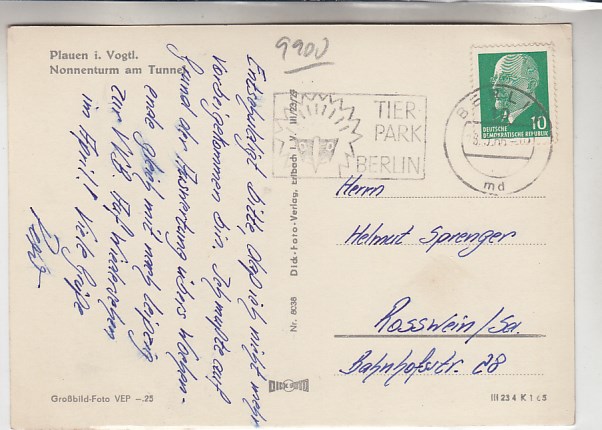 Plauen i. Vogtl.
Nonnenturm am Tunnel
9900
Entschuldigt bitte daß ich nicht mehr
vorbeigekommen bin. Ich mußte auf
Grund der Auswertung übers Wochen-
ende gleich mit nach Leipzig
zum VEB. Auf Wiedersehen
im April! Viele Grüße
Großbild-Foto VEP –.25
Dick-Foto-Verlag, Erlbach i. V. III/23/25
Nr. 8038
DICK
TIER
PARK
BERLIN
BERLI
md
10
DEUTSCHE
DEMOKRATISCHE REPUBLIK
Herrn
Helmut Sprenger
Rosswein/Sa.
Bahnhofstr. 28
III 23 4 K 1 65